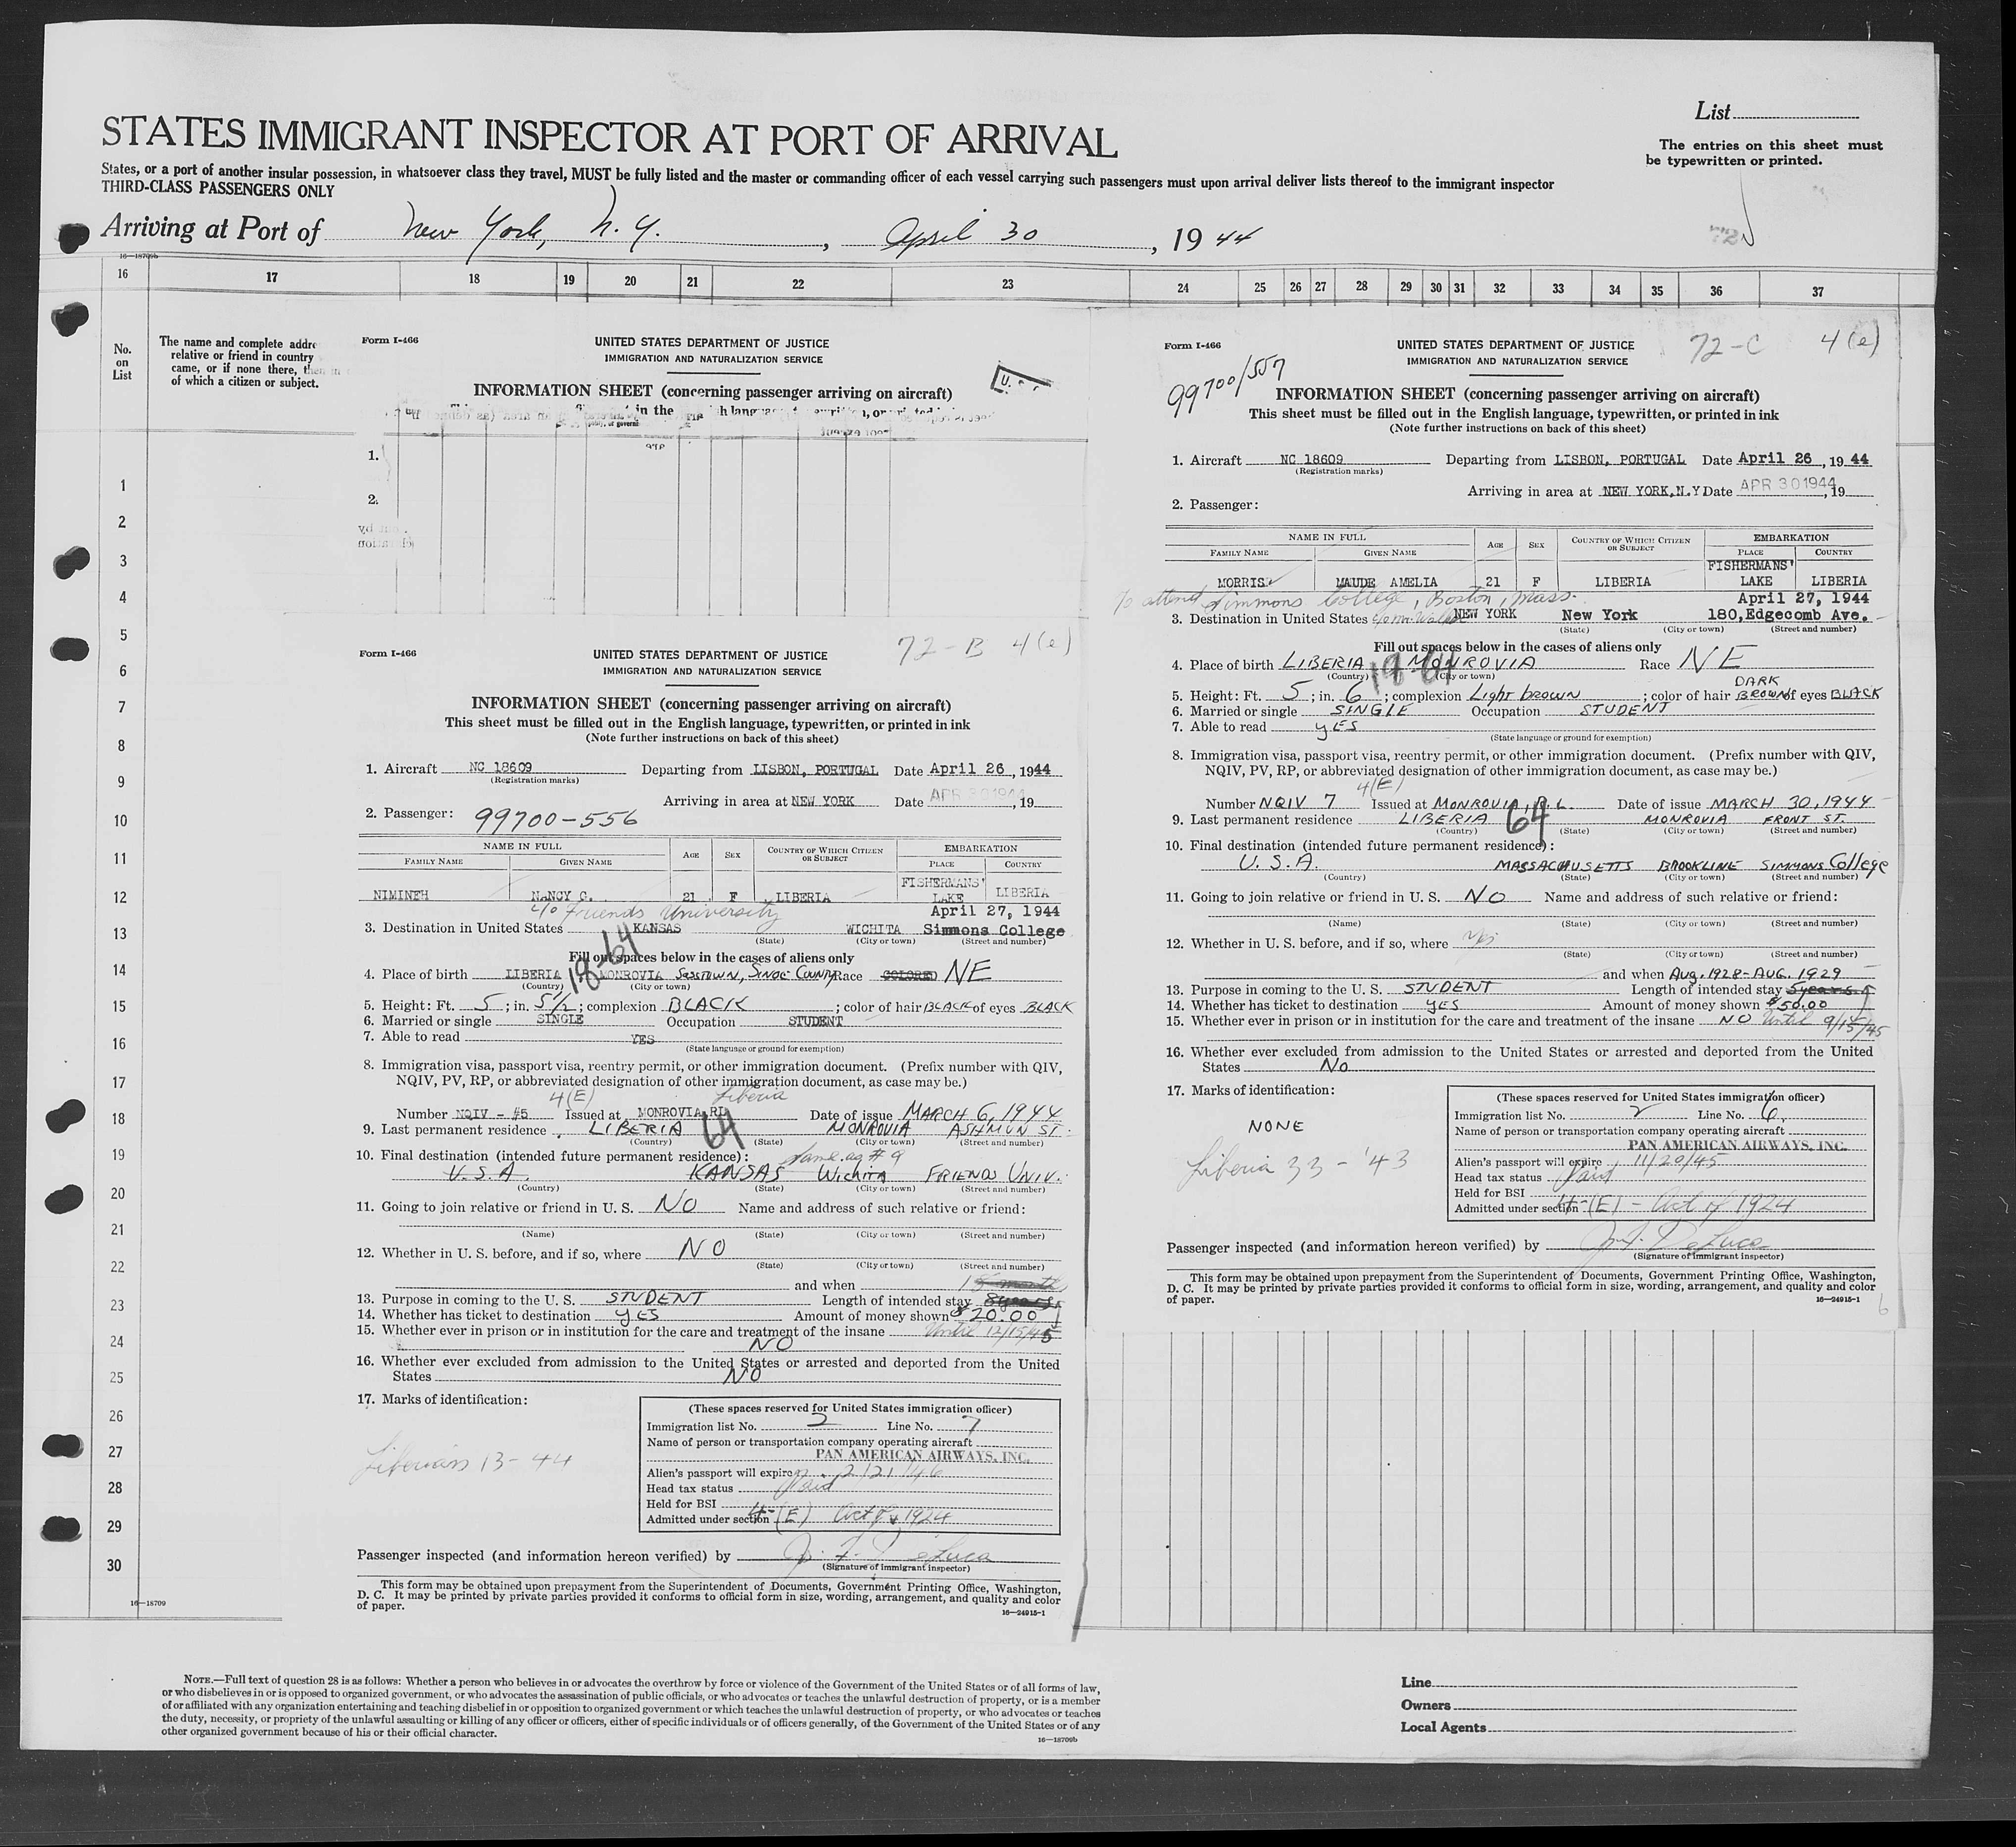 List
STATES IMMIGRANT INSPECTOR AT PORT OF ARRIVAL
The entries on this sheet must
be typewritten or printed.
States, or a port of another insular possession, in whatsoever class they travel, MUST be fully listed and the master or commanding officer of each vessel carrying such passengers must upon arrival deliver lists thereof to the immigrant inspector
THIRD-CLASS PASSENGERS ONLY
Arriving at Port of New York, N. Y. , April 30 , 19 44
16—18709b
16 17 18 19 20 21 22 23 24 25 26 27 28 29 30 31 32 33 34 35 36 37
No.
on
List
The name and complete addre
relative or friend in country
came, or if none there, then in
of which a citizen or subject.
1
2
3
4
5
6
7
8
9
10
11
12
13
14
15
16
17
18
19
20
21
22
23
24
25
26
27
28
29
30
16—18709
Form I-466
UNITED STATES DEPARTMENT OF JUSTICE
IMMIGRATION AND NATURALIZATION SERVICE
INFORMATION SHEET (concerning passenger arriving on aircraft)
1.
2.
72-B 4(e)
Form I-466
UNITED STATES DEPARTMENT OF JUSTICE
IMMIGRATION AND NATURALIZATION SERVICE
INFORMATION SHEET (concerning passenger arriving on aircraft)
This sheet must be filled out in the English language, typewritten, or printed in ink
(Note further instructions on back of this sheet)
1. Aircraft NC 18609 Departing from LISBON, PORTUGAL Date April 26 , 1944
(Registration marks)
Arriving in area at NEW YORK Date APR 30 1944 , 19
2. Passenger: 99700-556
NAME IN FULL AGE SEX COUNTRY OF WHICH CITIZEN OR SUBJECT EMBARKATION
FAMILY NAME GIVEN NAME PLACE COUNTRY
NIMINEH NANCY G. 21 F LIBERIA FISHERMANS' LAKE LIBERIA
c/o Friends University April 27, 1944
3. Destination in United States KANSAS WICHITA Simmons College
(State) (City or town) (Street and number)
Fill out spaces below in the cases of aliens only
18-64
4. Place of birth LIBERIA MONROVIA SASSTOWN, SINOE COUNTY Race COLORED NE
(Country) (City or town)
5. Height: Ft. 5 ; in. 5 1/2 ; complexion BLACK ; color of hair BLACK of eyes BLACK
6. Married or single SINGLE Occupation STUDENT
7. Able to read YES
(State language or ground for exemption)
8. Immigration visa, passport visa, reentry permit, or other immigration document. (Prefix number with QIV,
NQIV, PV, RP, or abbreviated designation of other immigration document, as case may be.)
4(E) Liberia
Number NQIV - #5 Issued at MONROVIA RL Date of issue MARCH 6, 1944
9. Last permanent residence LIBERIA 64 MONROVIA ASHMUN ST.
(Country) (State) (City or town) (Street and number)
10. Final destination (intended future permanent residence): Same as # 9
U.S.A. KANSAS Wichita FRIENDS UNIV.
(Country) (State) (City or town) (Street and number)
11. Going to join relative or friend in U. S. NO Name and address of such relative or friend:
(Name) (State) (City or town) (Street and number)
12. Whether in U. S. before, and if so, where NO
(State) (City or town) (Street and number)
and when
13. Purpose in coming to the U. S. STUDENT Length of intended stay 8 years
14. Whether has ticket to destination YES Amount of money shown $20.00
15. Whether ever in prison or in institution for the care and treatment of the insane Until 12/15/45
NO
16. Whether ever excluded from admission to the United States or arrested and deported from the United
States NO
17. Marks of identification:
13-44
(These spaces reserved for United States immigration officer)
Immigration list No. 2 Line No. 7
Name of person or transportation company operating aircraft
PAN AMERICAN AIRWAYS, INC.
Alien's passport will expire 2/21/46
Head tax status Paid
Held for BSI
Admitted under section 4-(E) Act of 1924
Passenger inspected (and information hereon verified) by J. F. DeLuca
(Signature of immigrant inspector)
This form may be obtained upon prepayment from the Superintendent of Documents, Government Printing Office, Washington,
D. C. It may be printed by private parties provided it conforms to official form in size, wording, arrangement, and quality and color
of paper.
16—24915-1
72-C 4(e)
Form I-466
99700/557
UNITED STATES DEPARTMENT OF JUSTICE
IMMIGRATION AND NATURALIZATION SERVICE
INFORMATION SHEET (concerning passenger arriving on aircraft)
This sheet must be filled out in the English language, typewritten, or printed in ink
(Note further instructions on back of this sheet)
1. Aircraft NC 18609 Departing from LISBON, PORTUGAL Date April 26 , 19 44
(Registration marks)
Arriving in area at NEW YORK,N.Y Date APR 30 1944 , 19
2. Passenger:
NAME IN FULL AGE SEX COUNTRY OF WHICH CITIZEN OR SUBJECT EMBARKATION
FAMILY NAME GIVEN NAME PLACE COUNTRY
MORRIS MAUDE AMELIA 21 F LIBERIA FISHERMANS' LAKE LIBERIA
To attend Simmons College, Boston, Mass. April 27, 1944
3. Destination in United States NEW YORK New York 180,Edgecomb Ave.
(State) (City or town) (Street and number)
Fill out spaces below in the cases of aliens only
18-64
4. Place of birth LIBERIA MONROVIA Race NE
(Country) (City or town)
5. Height: Ft. 5 ; in. 6 ; complexion Light brown ; color of hair DARK BROWN of eyes BLACK
6. Married or single SINGLE Occupation STUDENT
7. Able to read YES
(State language or ground for exemption)
8. Immigration visa, passport visa, reentry permit, or other immigration document. (Prefix number with QIV,
NQIV, PV, RP, or abbreviated designation of other immigration document, as case may be.)
4(E)
Number NQIV 7 Issued at MONROVIA, R.L. Date of issue MARCH 30, 1944
9. Last permanent residence LIBERIA 64 MONROVIA FRONT ST.
(Country) (State) (City or town) (Street and number)
10. Final destination (intended future permanent residence):
U.S.A. MASSACHUSETTS BROOKLINE SIMMONS College
(Country) (State) (City or town) (Street and number)
11. Going to join relative or friend in U. S. NO Name and address of such relative or friend:
(Name) (State) (City or town) (Street and number)
12. Whether in U. S. before, and if so, where Yes
(State) (City or town) (Street and number)
and when Aug. 1928-AUG. 1929
13. Purpose in coming to the U. S. STUDENT Length of intended stay 5 years
14. Whether has ticket to destination YES Amount of money shown $50.00
15. Whether ever in prison or in institution for the care and treatment of the insane NO Until 9/15/45
16. Whether ever excluded from admission to the United States or arrested and deported from the United
States No
17. Marks of identification:
NONE
Liberia 33 - '43
(These spaces reserved for United States immigration officer)
Immigration list No. 2 Line No. 6
Name of person or transportation company operating aircraft
PAN AMERICAN AIRWAYS, INC.
Alien's passport will expire 11/20/45
Head tax status Paid
Held for BSI
Admitted under section 4-(E) - Act of 1924
Passenger inspected (and information hereon verified) by J. F. DeLuca
(Signature of immigrant inspector)
This form may be obtained upon prepayment from the Superintendent of Documents, Government Printing Office, Washington,
D. C. It may be printed by private parties provided it conforms to official form in size, wording, arrangement, and quality and color
of paper.
16—24915-1
6
NOTE.—Full text of question 28 is as follows: Whether a person who believes in or advocates the overthrow by force or violence of the Government of the United States or of all forms of law,
or who disbelieves in or is opposed to organized government, or who advocates the assassination of public officials, or who advocates or teaches the unlawful destruction of property, or is a member
of or affiliated with any organization entertaining and teaching disbelief in or opposition to organized government or which teaches the unlawful destruction of property, or who advocates or teaches
the duty, necessity, or propriety of the unlawful assaulting or killing of any officer or officers, either of specific individuals or of officers generally, of the Government of the United States or of any
other organized government because of his or their official character.
16—18709b
Line
Owners
Local Agents